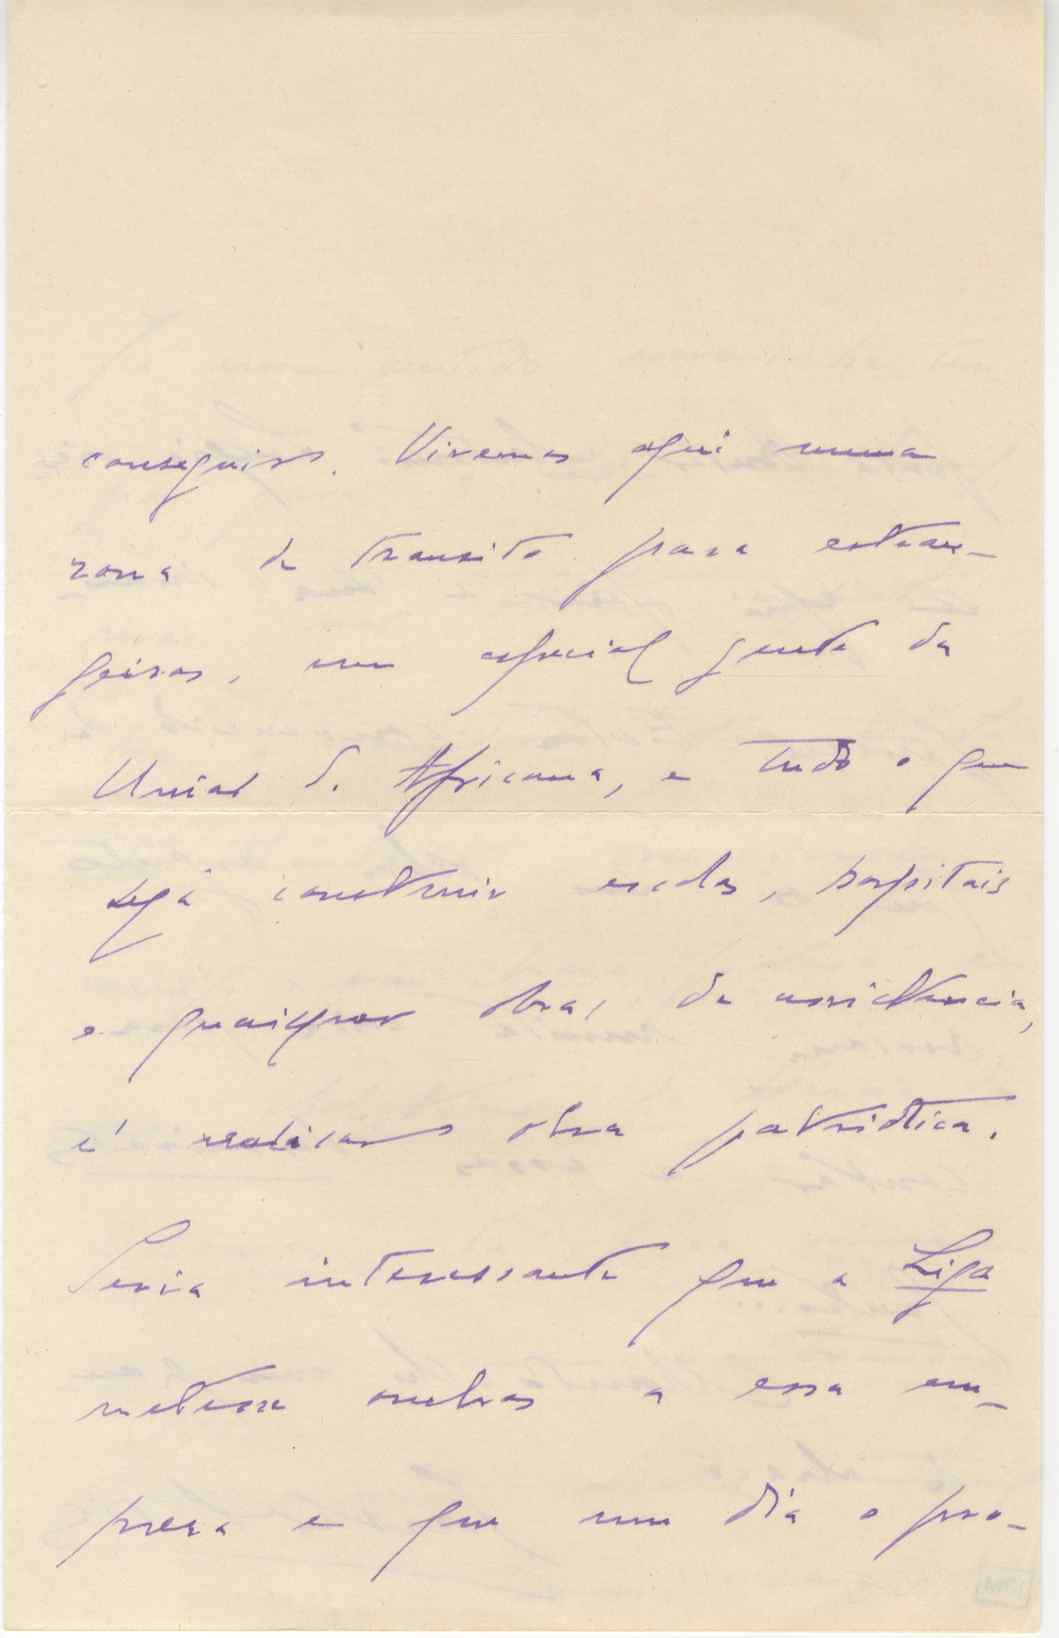 conseguiro. Vivemos aqui numa
zona de transito para estran-
geiros, em especial gente da
União S. Africana, e tudo o que
seja construir escolas, hospitais
e quaisquer obras de assistencia,
é realisar obra patriótica.
Seria interessante que a Liga
metesse ombros a essa em-
preza e que um dia o pro-